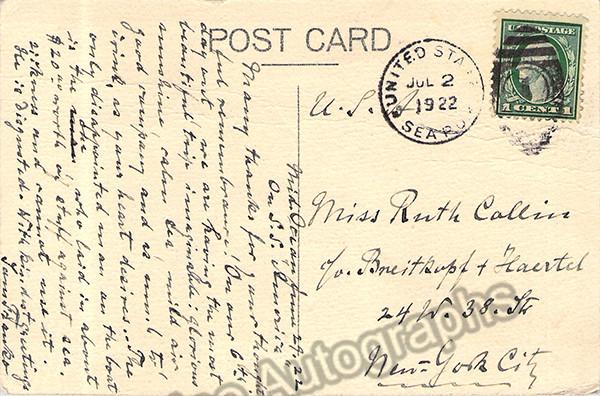 POST CARD
UNITED STAT
JUL 2
1922
SEA PO
U.S. POSTAGE
1 CENT 1
Mid Ocean June 29, 22
On S.S. America
Many thanks for your thought-
ful remembrance! On our 6th
day out, we are having the most
beautiful trip imaginable. Glorious
sunshine, calm sea, mild air
good company and as much to
drink, as your heart desires. The
only disappointed man on the boat
is the who laid in about
$20.00 worth of stuff against sea
sickness and cannot use it.
He is disgusted. With kindest greetings
Sam Franko
U. S. A.
Miss Ruth Collin
c/o. Breitkopf & Haertel
24 W. 38. Str
New-York City
Autographs